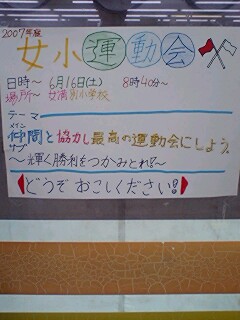 2007年度
女小運動会
日時～ 6月16日(土) 8時40分～
場所～ 女満別小学校
テーマ
メイン
仲間と協力し最高の運動会にしよう。
サブ
～輝く勝利をつかみとれ!～
どうぞ おこしください!